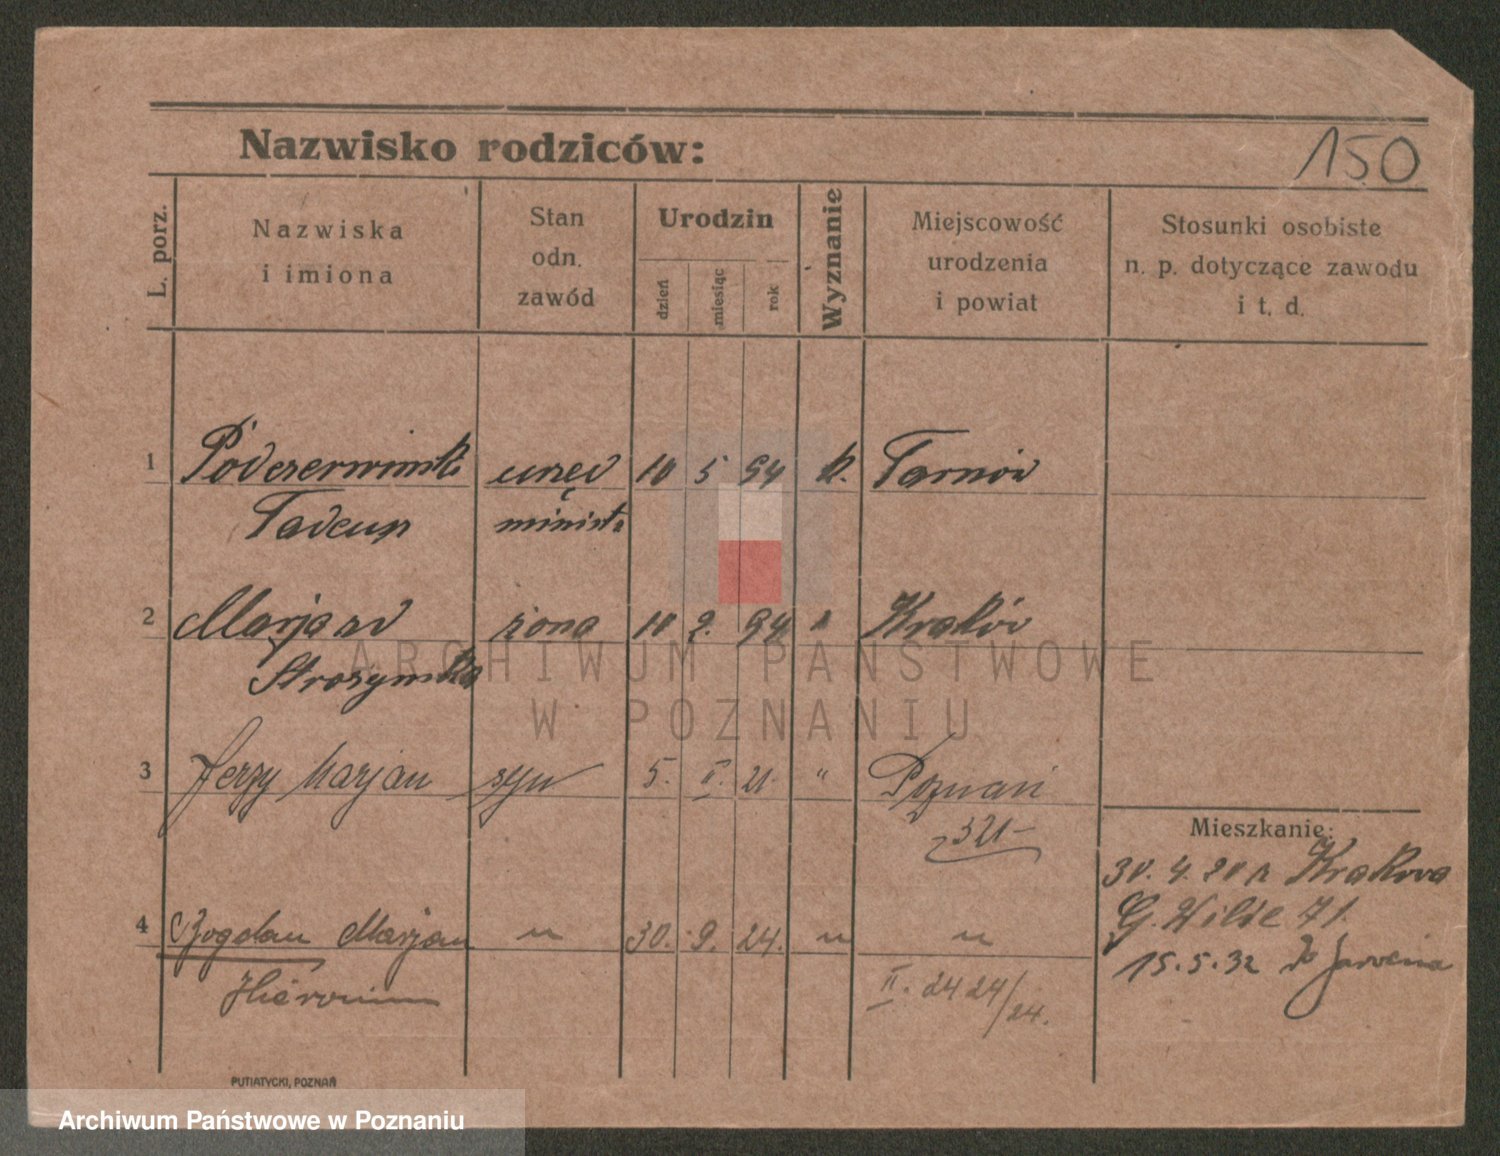 Nazwisko rodziców:
150
L. porz.
Nazwiska
i imiona
Stan
odn.
zawód
Urodzin
dzień
miesiąc
rok
Wyznanie
Miejscowość
urodzenia
i powiat
Stosunki osobiste
n. p. dotyczące zawodu
i t. d.
1 Podczerwinski urzęd 10 5 94 k. Tarnów
Tadeusz minist.
2 Marja zd żona 10 2. 94 Kraków
Stroszymska
3 Jerzy Marjan syn 5. II. 21. " Poznań
321-
Mieszkanie:
30. 4. 20 z Krakowa
G. Wilde 71.
4 Bogdan Marjan " 30. 9. 24. " "
15. 5. 32 Do Jarocina
Hieronim
II. 24 24/24.
PUTIATYCKI, POZNAŃ
ARCHIWUM PAŃSTWOWE
W POZNANIU
Archiwum Państwowe w Poznaniu